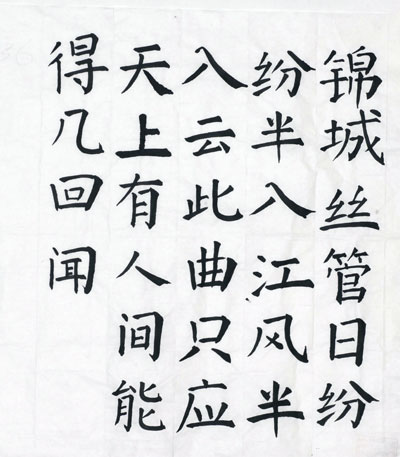 锦城丝管日纷
纷半八江风半
八云此曲只应
天上有人间能
得几回闻